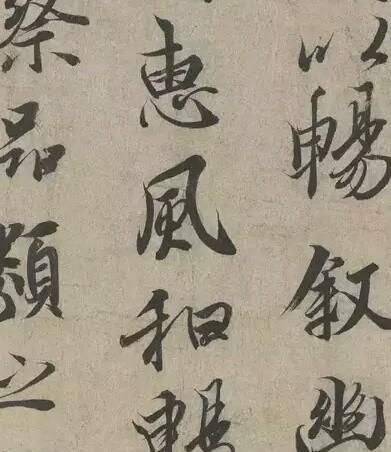 以暢叙幽
惠風和暢
察品類之